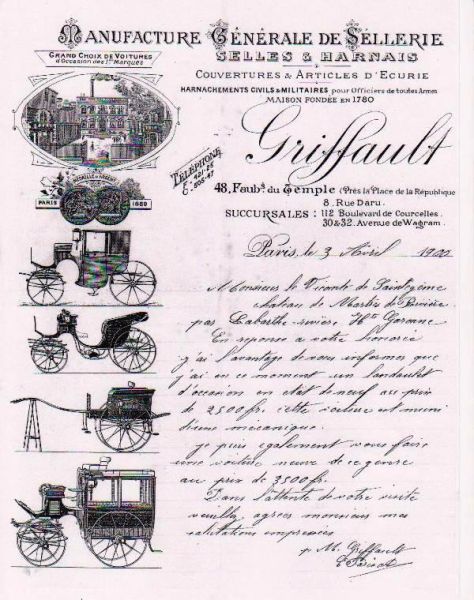 MANUFACTURE GÉNÉRALE DE SELLERIE
GRAND CHOIX DE VOITURES
d'Occasion des 1res Marques
SELLES & HARNAIS
COUVERTURES & ARTICLES D'ECURIE
HARNACHEMENTS CIVILS & MILITAIRES pour Officiers de toutes Armes
MAISON FONDÉE EN 1780
Griffault
TÉLÉPHONE
MÉDAILLE D'ARGENT
PARIS 1889
48, Faubg du Temple (Près la Place de la République
8, Rue Daru.
SUCCURSALES: 112 Boulevard de Courcelles.
30 & 32, Avenue de Wagram.
Paris, le 3 Avril 1900
Monsieur le Vicomte de Saint-gème
chateau de Martres de Rivière
par Labarthe-rivière Hte Garonne
En reponse a votre honorée
j'ai l'avantage de vous informer que
j'ai en ce moment un landaulet
d'occasion en état de neuf au prix
de 2500 fr. cette voiture est muni
d'une mecanique.
je puis egalement vous faire
une voiture neuve de ce genre
au prix de 3500 fr.
Dans l'attente de votre visite
veuillez agréer monsieur mes
salutations empressées
p. M. Griffault